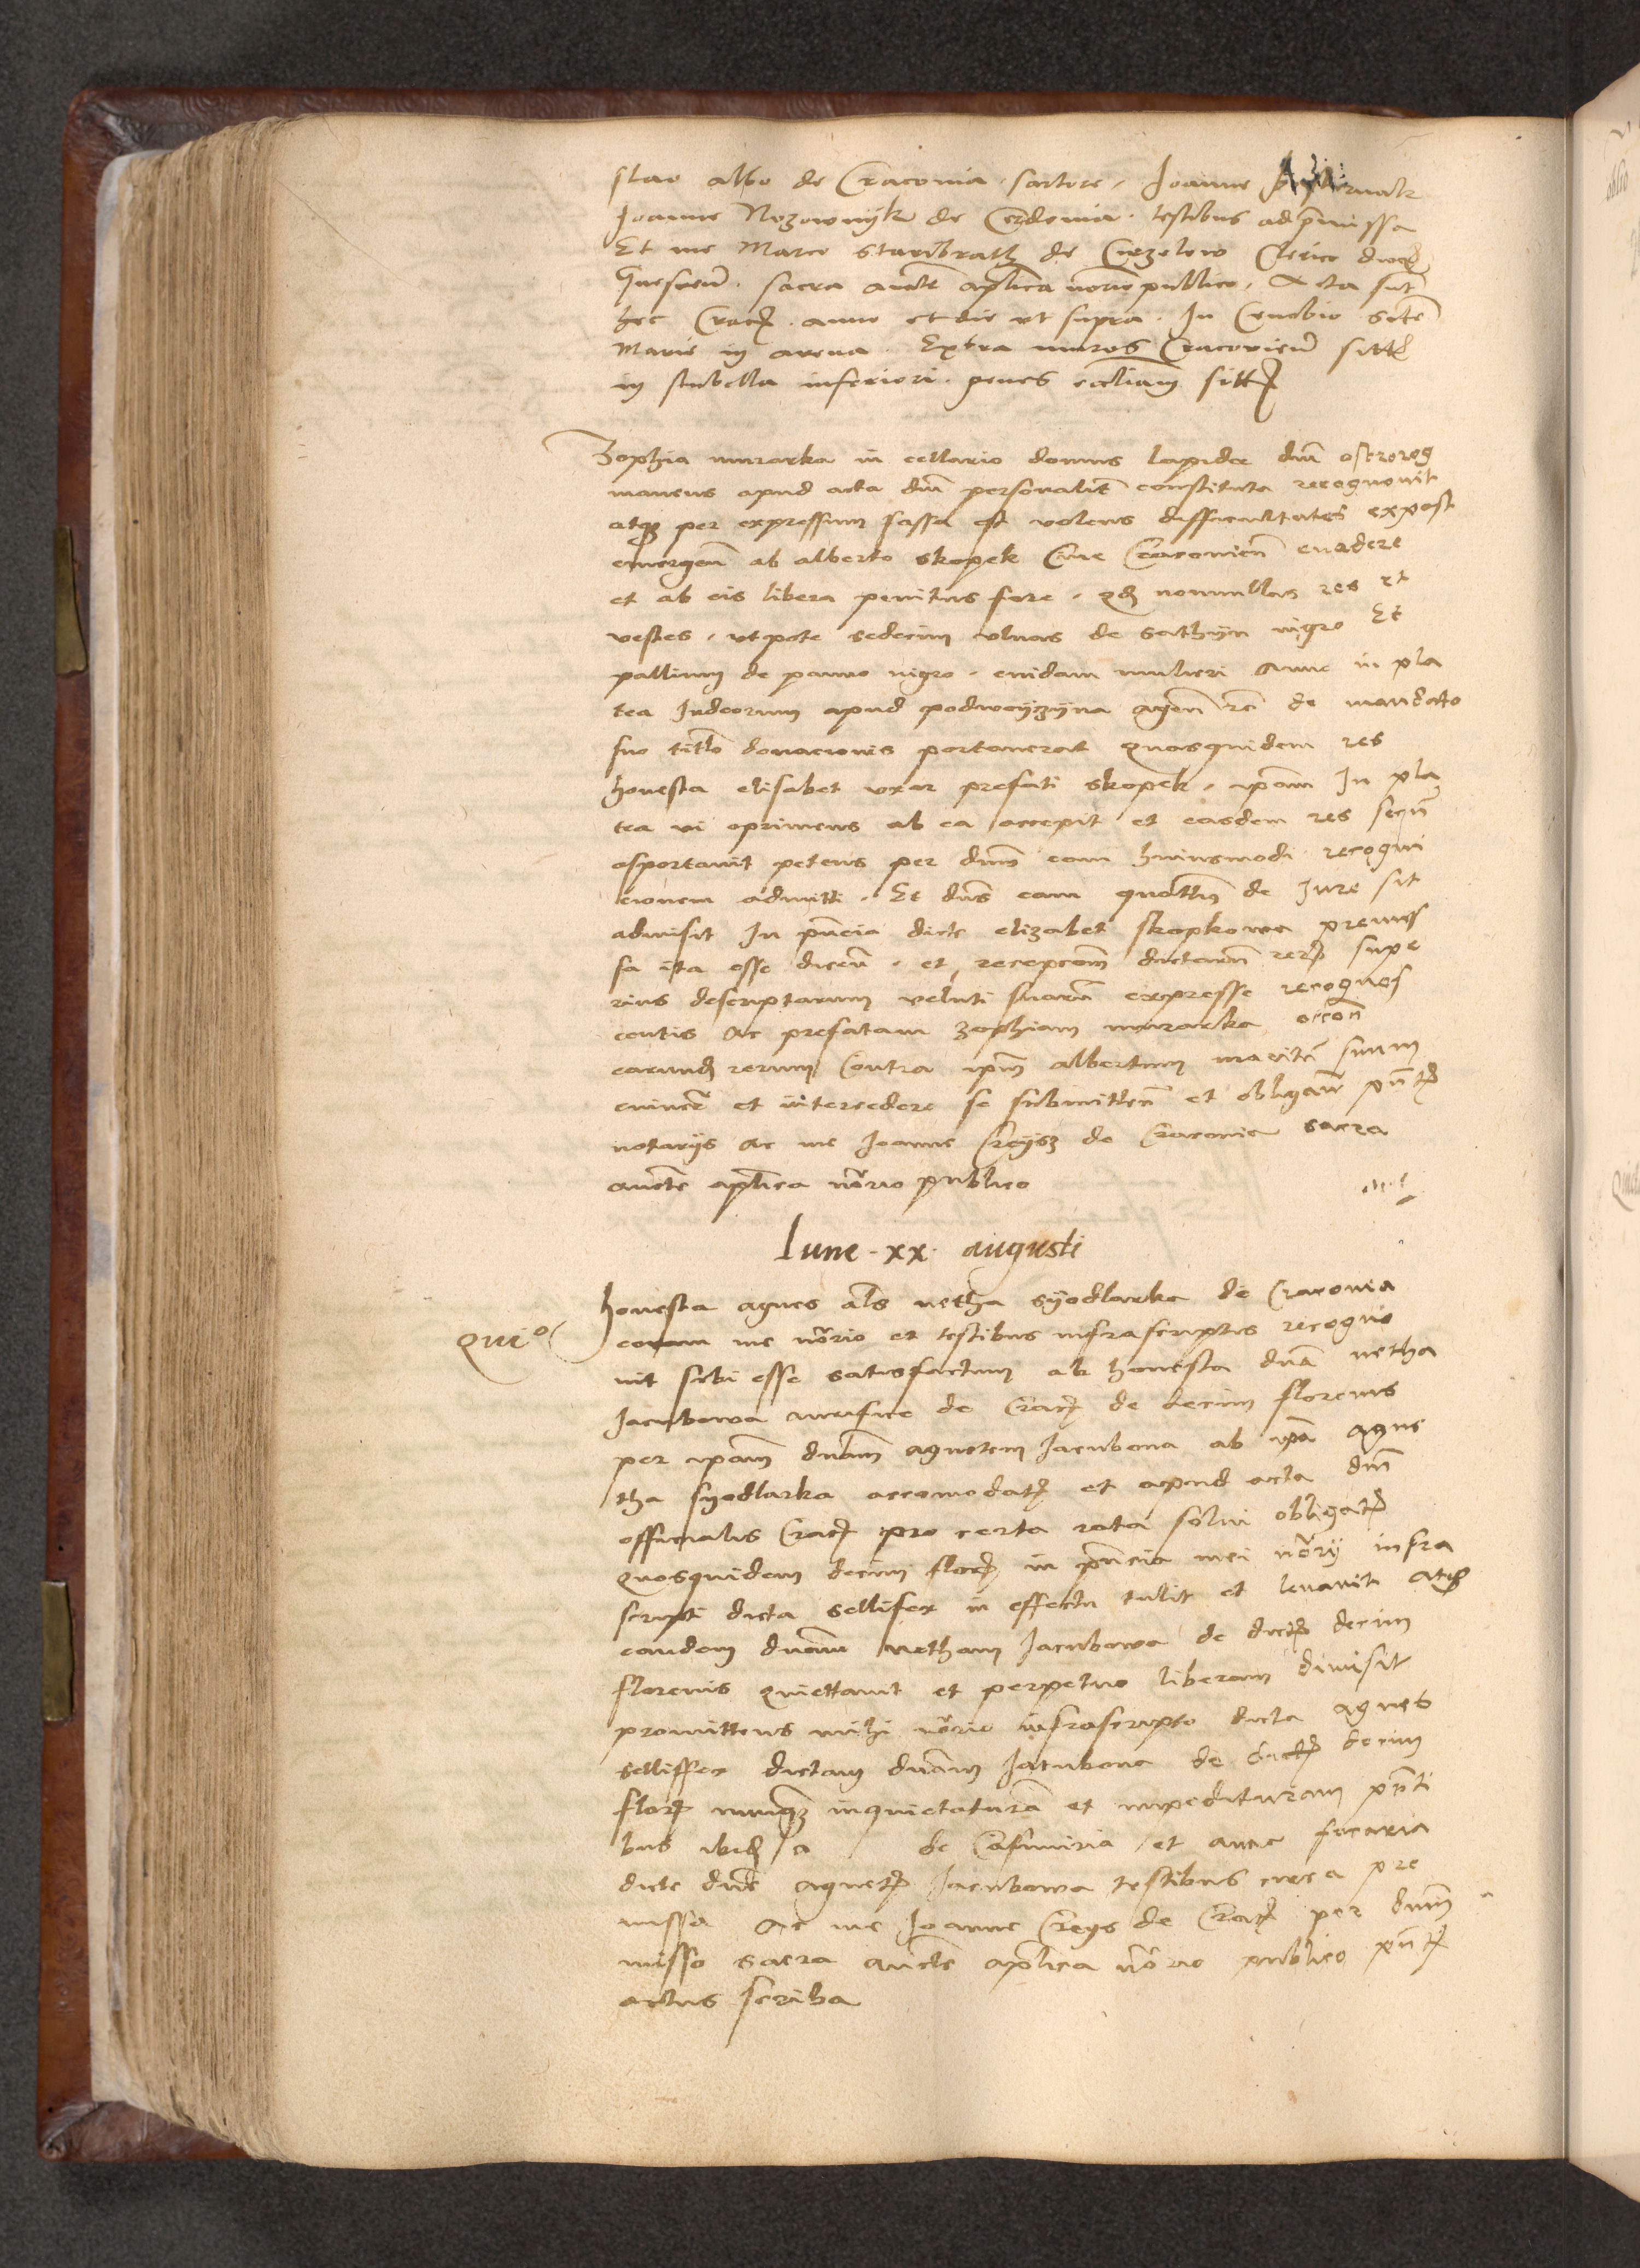 slao albo de Cracovia sartore, Joanne
Joanne Nozownyk de testibus ad premissa
Et me Marco Staribrath de Curzelow Clerico dioc
Gnesnen. sacra auctte aplica notrio publico, Acta sut
hec Crac. anno et die ut supra. In Cenobio scte
Marie in arena Extra muros Cracovien sitto
in stubella inferiori. penes eccliam sitt
Zophia murarka in cellario domus lapidee dni ostrorog
manens apud acta dni personalit constituta recognovit
atq per expressum fassa est volens difficultates expost
emergen ab alberto Skopek Cive Cracovien evadere
et ab eis libera penitus fore, qd nonnullas res et
vestes, utpote sedecim ulnas de sathyn nigro Et
pallium de panno nigro, cuidam mulieri Anne in pla
tea Judeorum apud podwyzyna agen de mandato
suo titlo donacionis portaverat quasquidem res
honesta elisabet uxor prefati Skopek, ipam In pla
tea vi oprimens ab ea accepit et easdem res secu
asportavit petens per dnm eam huiusmodi recogni
cionem admitti. Et dns eam quattu de Jure sit
admisit In pncia dicte elizabet Skopkowa premis
sa ita esse dicen. et recepcom dictarum rer supe
rius descriptarum veluti suaru expresse recognos
centis Ac prefatam Zophiam murarka occon
earund rerum Contra ipm albertum maritu suum
evincere et intercedere se submitten et obligan pntt
notariis Ac me Joanne Creysz de Cracovia sacra
auctte aplica notrio publico
Lune . xx . augusti
Quio
Honesta agnes als netha syodlarka de Cracovia
coram me notrio et testibus infrascriptis recogno
vit sibi esse satisfactum ab honesta dna netha
Jacubowa aurifice de Crac de decem florenis
per ipam dnam agnetem Jacubova ab ipa agne
tha syodlarka accomodat et apud acta dni
officialis Crac pro certa rata solvi obligat
Quosquidem decim flor in pncia mei notrii infra
scripti dicta sellifex in effectu tulit et levavit atq
eandem dnam netham Jacubowa de dict decim
florenis quittavit et perpetuo liberam dimisit
promittens mihi notrio infrascripto dicta agnes
sellifex dictam dnam Jacubova de dict decim
flor nunq inquietaturam et impedituram pnti
bus ibid a de Casimiria et anna focaria
dicte dne agnet Jacubowa testibus circa pre
missa Ac me Joanne Creys de Crac per dnm
misso sacra auctte aplica notrio publico pnt
actus scriba